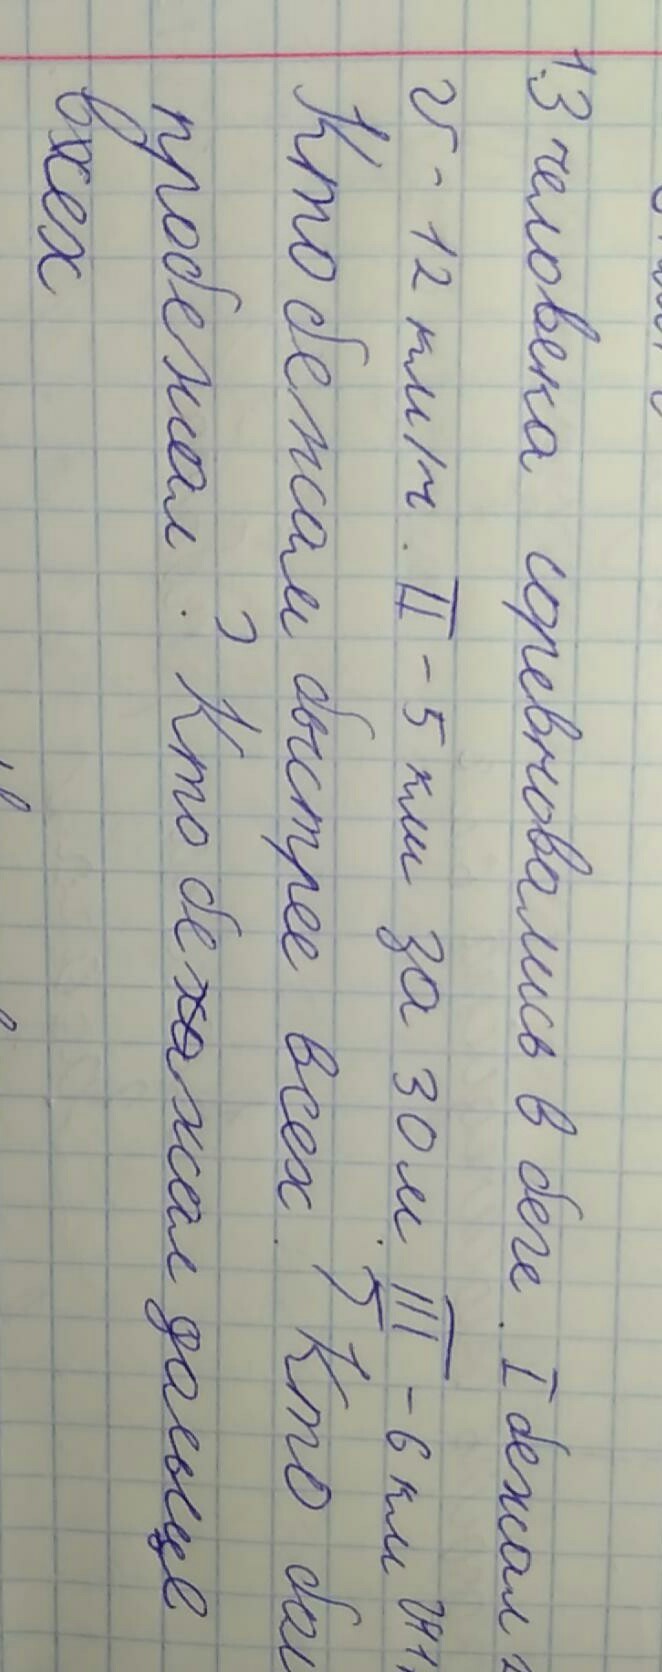 1. 3 человека соревновались в беге. I бежал
V - 12 км/ч. II - 5 км за 30 м. III - 6 км
Кто бежал быстрее всех. Кто
пробежал ? Кто бежал дальше
всех